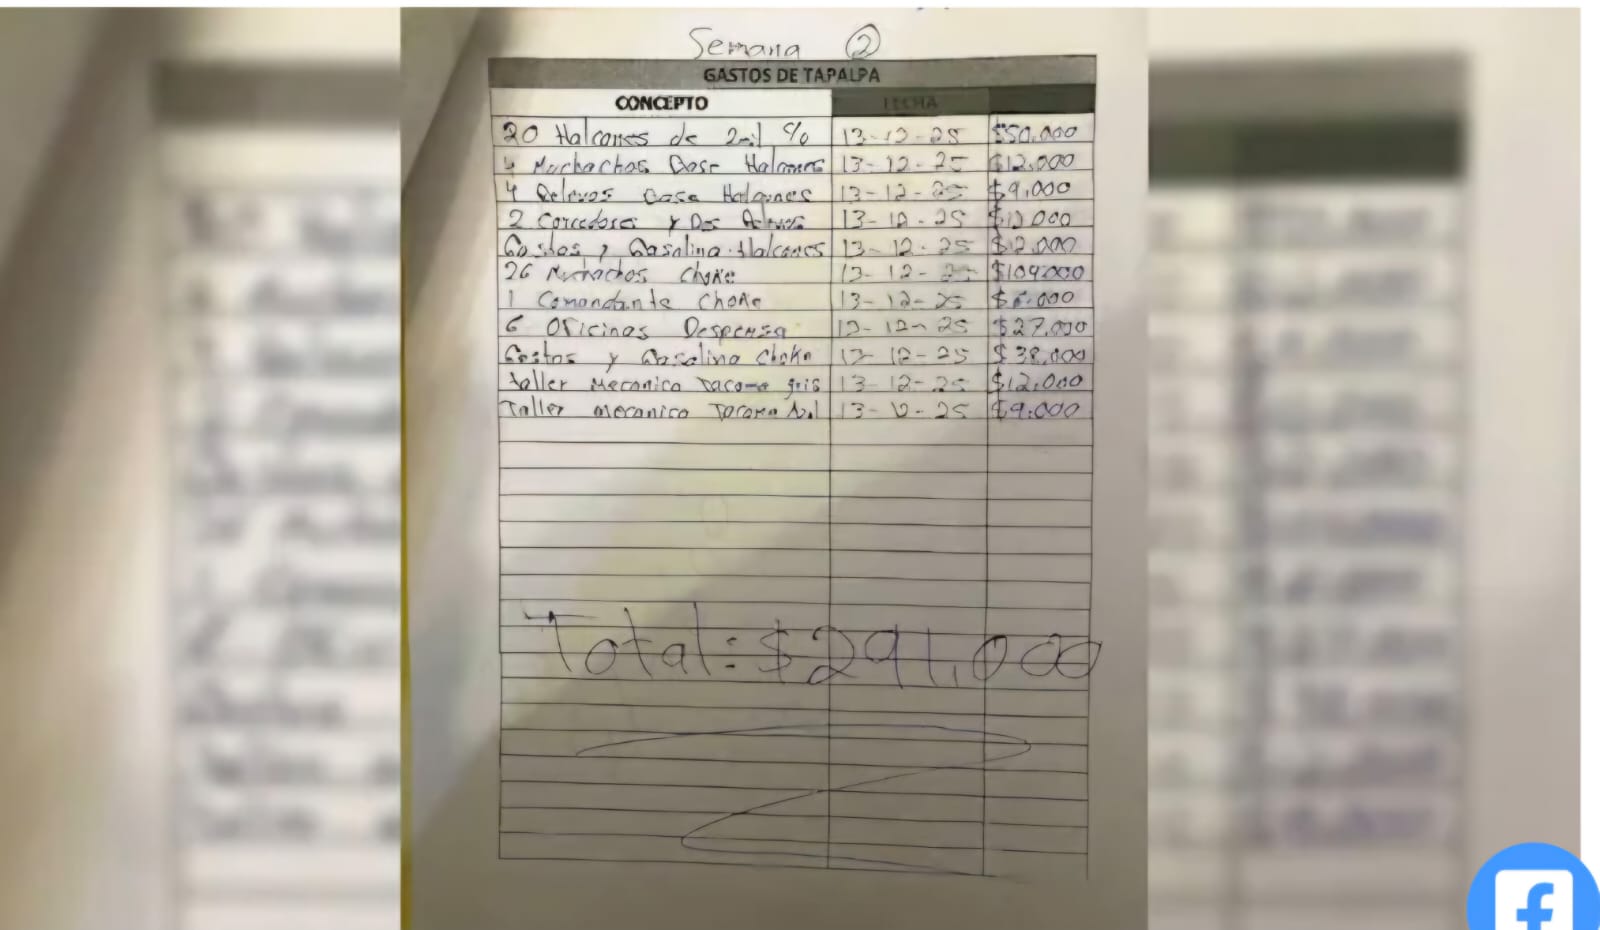 Semana 2
GASTOS DE TAPALPA
CONCEPTO FECHA
20 Halcones de 2mil % 13-12-25 $50.000
4 Muchachos Base Halcones 13-12-25 $12.000
4 Relevos Base Halcones 13-12-25 $9,000
2 Corredores y Dos Relevos 13-12-25 000
Gastos y Gasolina Halcones 13-12-25 $12.000
26 Muchachos Choke 13-12-25 $104.000
1 Comandante Choke 13-12-25
6 Oficinas Despensa 13-12-25 $27.000
Gastos y Gasolina Choke 13-12-25 $38.000
taller Mecanico Tacoma gris 13-12-25 $12.000
Taller mecanico Tacoma Azul 13-12-25 $9.000
Total: $291,000